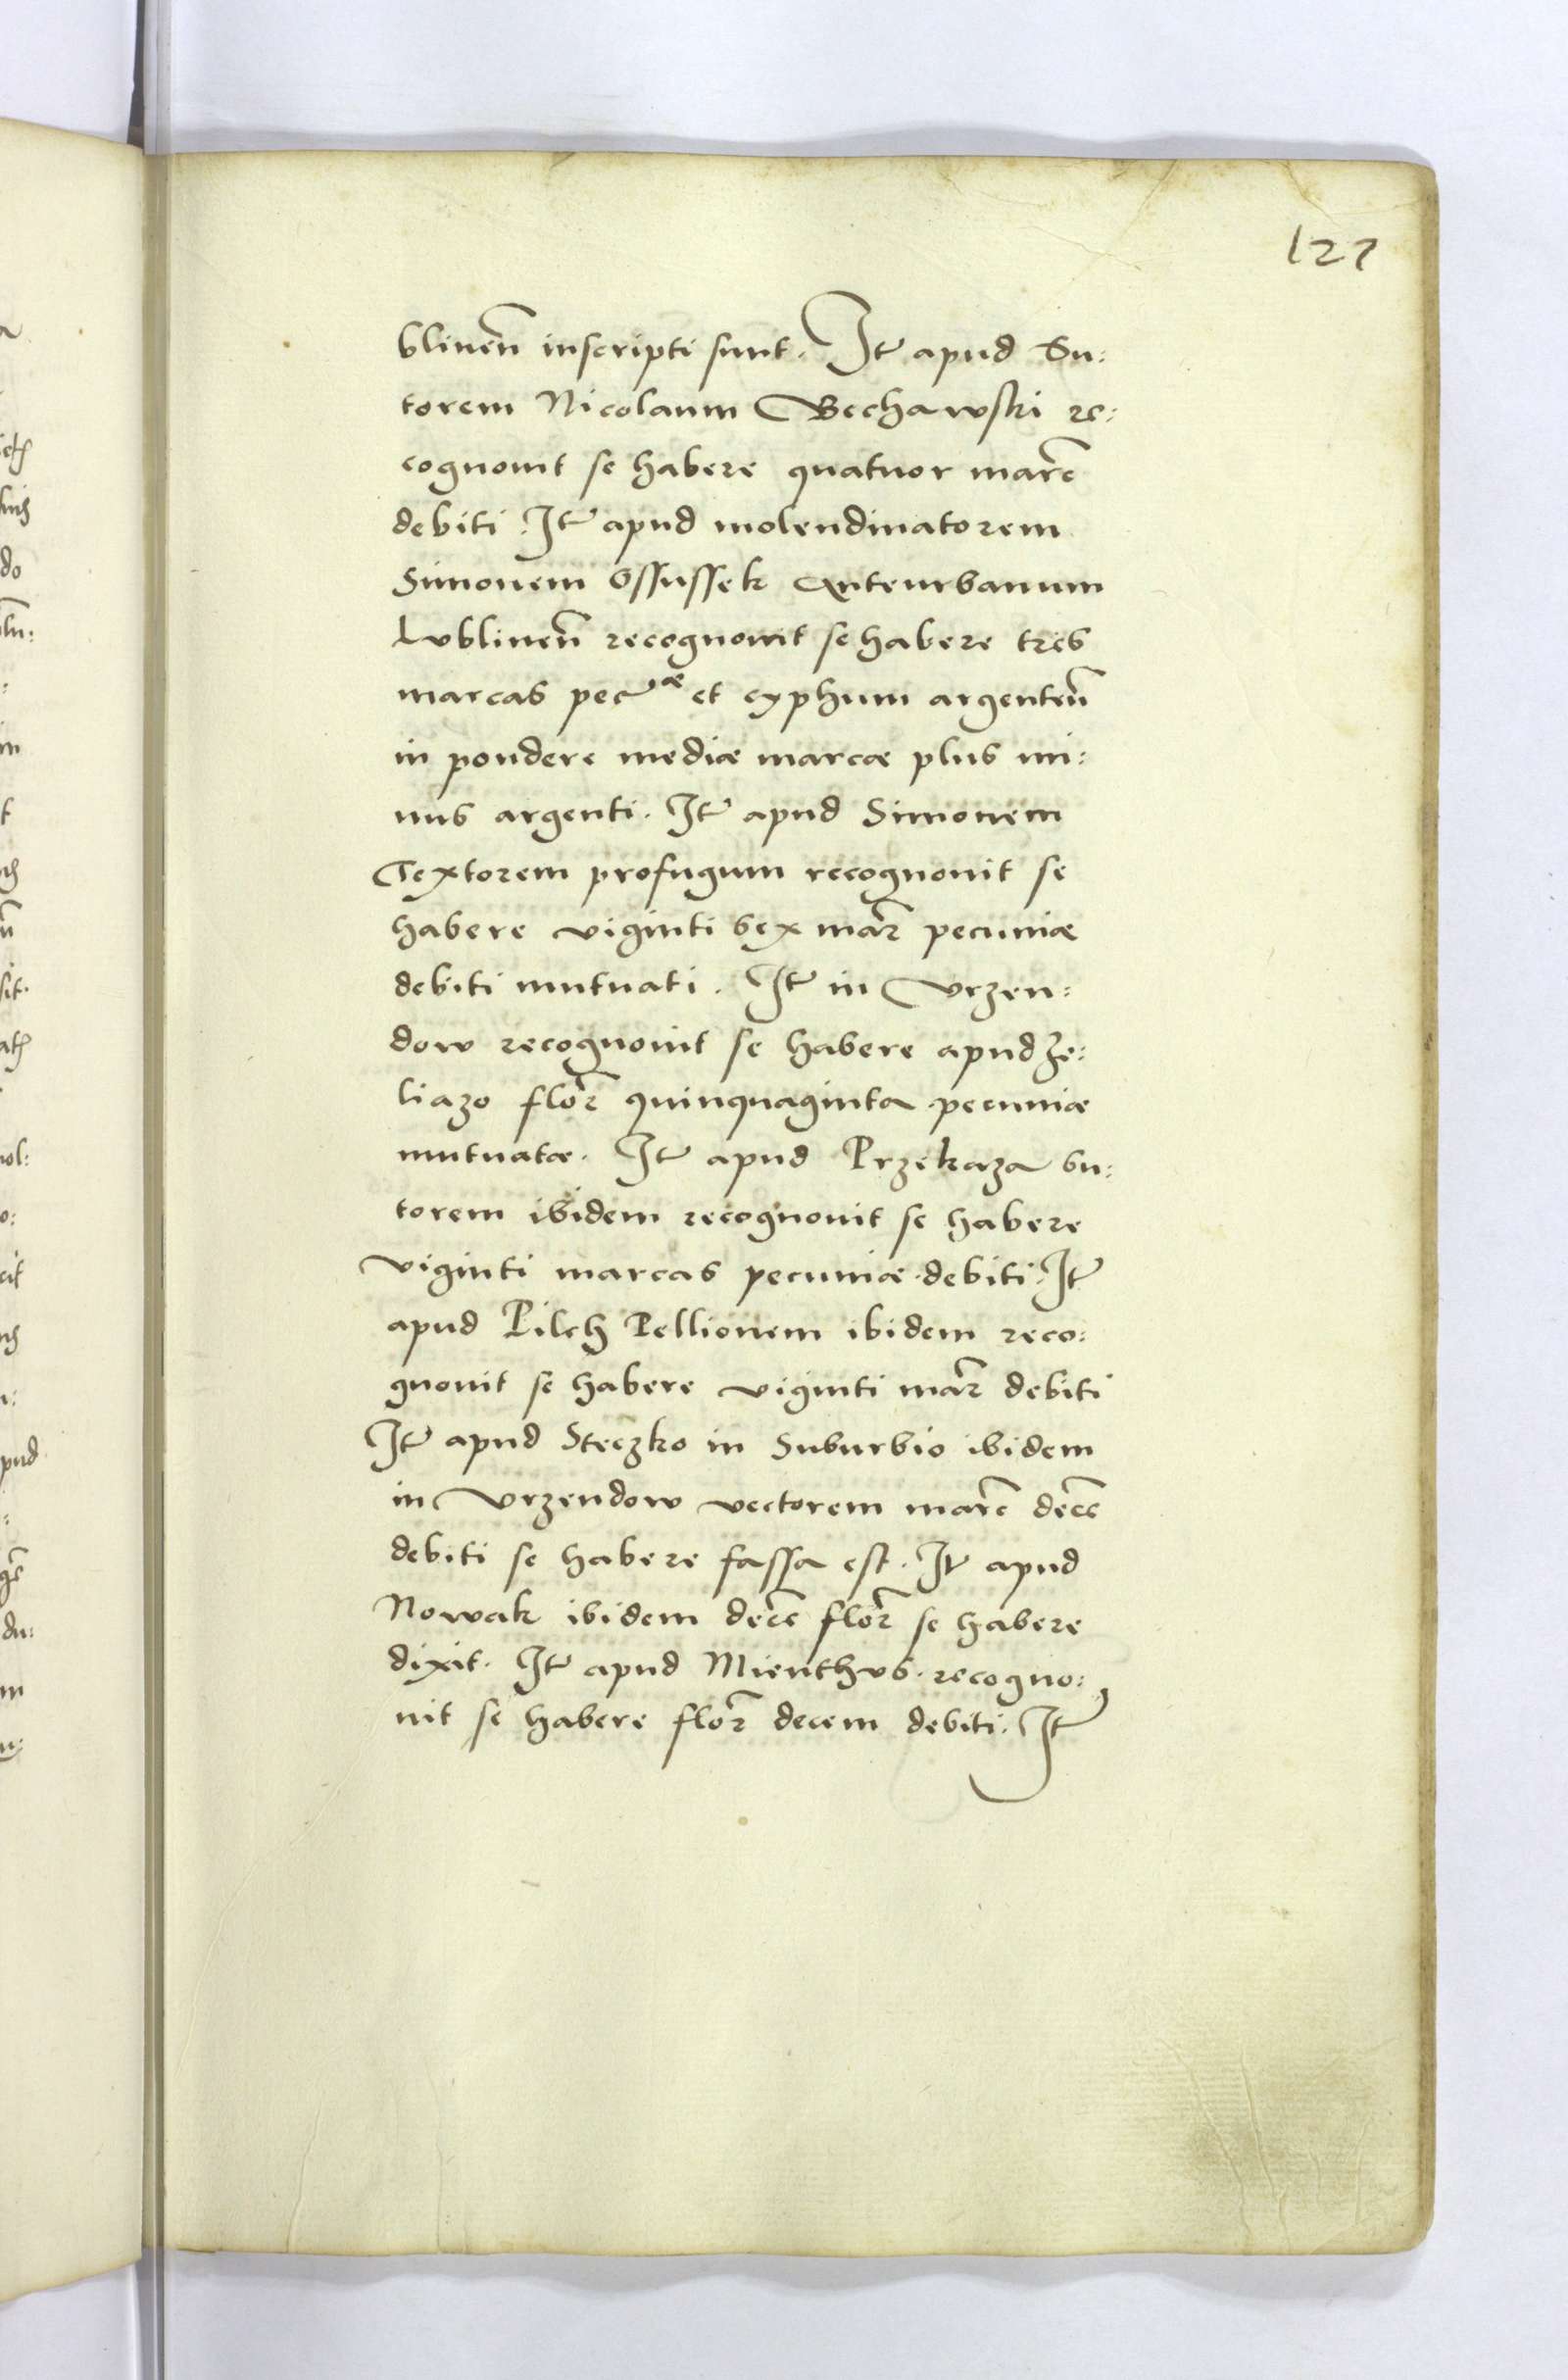 127
blinen̄ inscripti sunt. Itē apud Su:
torem Nicolaum Bechawski re:
cognouit se habere quatuor marc̄
debiti. Itē apud molendinatorem
Simonem Ossussek Anteurbanum
Lublinen̄ recognouit se habere tres
marcas pecᵃᵉ et cyphum argenteū
in pondere mediæ marcæ plus mi:
nus argenti. Itē apud Simonem
Textorem profugum recognouit se
habere viginti sex mar̄ pecuniæ
debiti mutuati. Itē in Vrzen:
dow recognouit se habere apud Ze:
liazo flor̄ quinquaginta pecuniæ
mutuatæ. Itē apud Przekaza su:
torem ibidem recognouit se habere
viginti marcas pecuniæ debiti. Itē
apud Pilch Pellionem ibidem reco:
gnouit se habere viginti mar̄ debiti
Itē apud Steczko in Suburbio ibidem
in Vrzendow vectorem marc̄ decē
debiti se habere fassa est. Itē apud
Nowak ibidem decē flor̄ se habere
dixit. Itē apud Mienthus recogno:
uit se habere flor̄ decem debiti. Itē